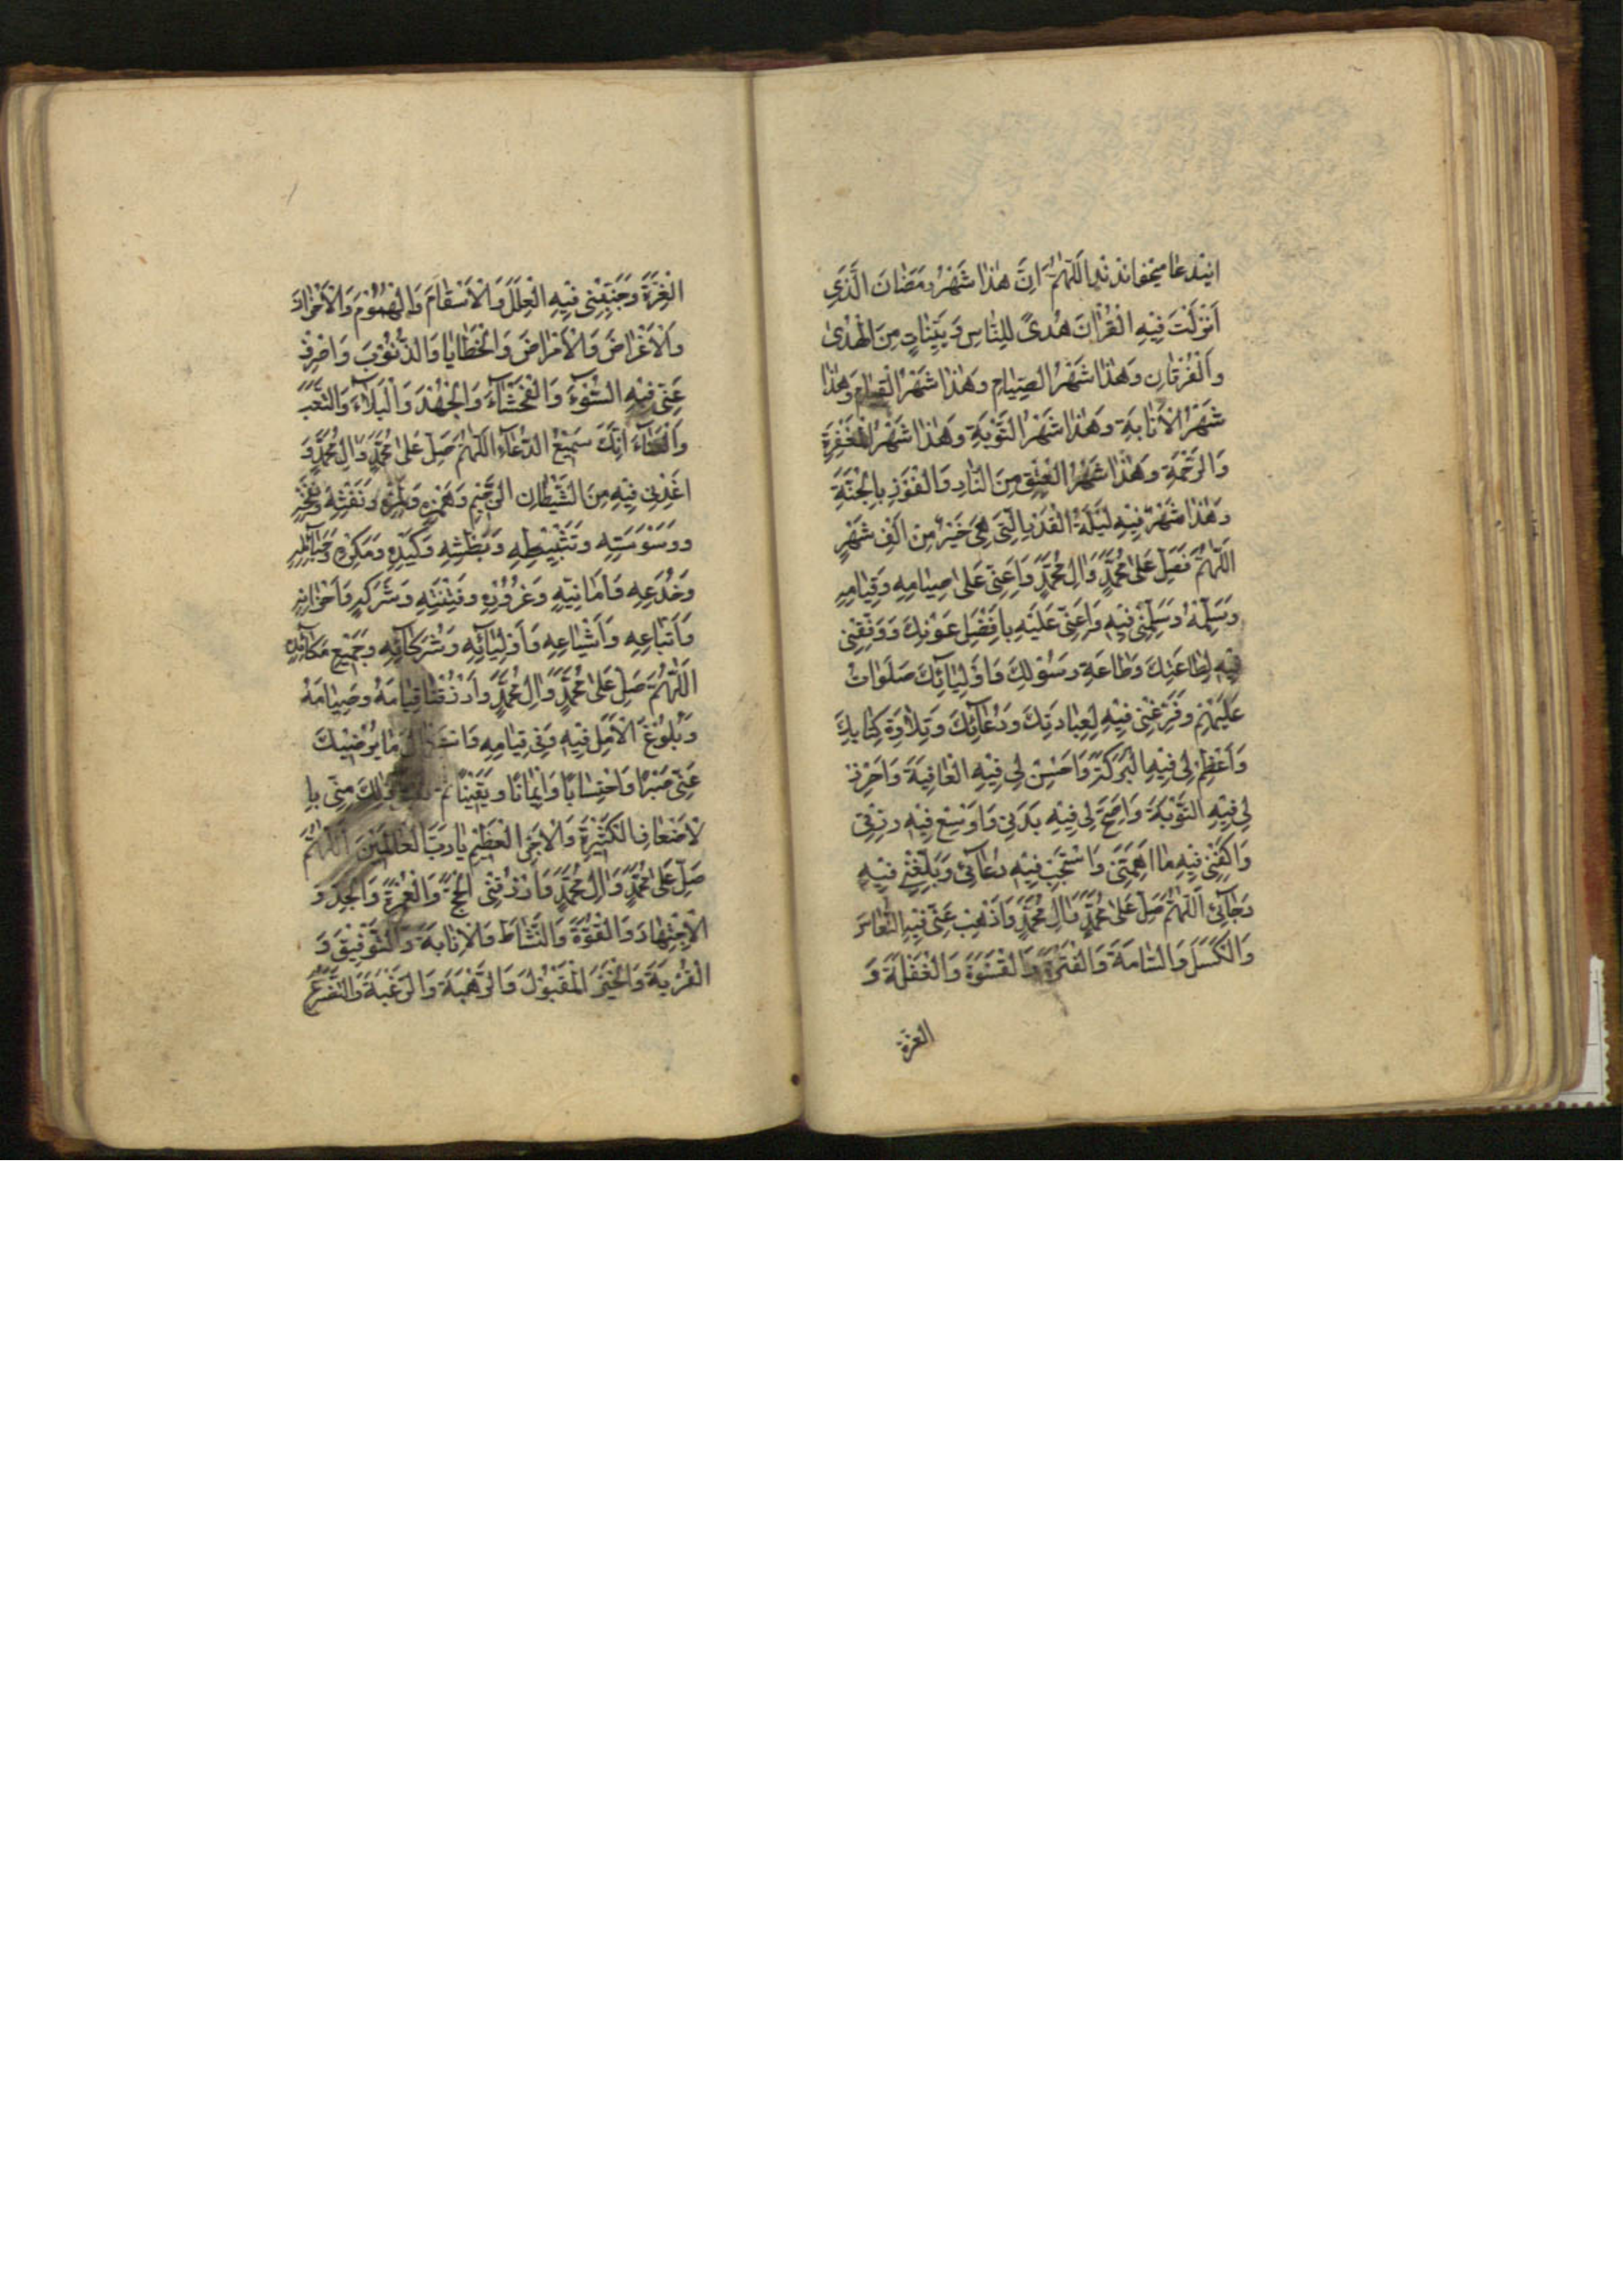 این دعا میخواندند اَللّٰهُمَّ اِنَّ هٰذا شَهْرُ رَمَضٰانَ الَّذَي
اَنْزَلْتَ فِيْهِ الْقُرْاٰنَ هُدىً لِلنّٰاسِ وَبَيِّنٰاتٍ مِنَ الْهُدٰى
وَالْفُرْقٰانِ وَهٰذا شَهْرُ الصِّيٰامِ وَهٰذا شَهْرُ الْقِيٰامِ وَهٰذا
شَهْرُ الْاَنٰابَةِ وَهٰذا شَهْرُ التَّوْبَةِ وَهٰذا شَهْرُ الْمَغْفِرَةِ
وَالرَّحْمَةِ وَهٰذا شَهْرُ الْعِتْقِ مِنَ النّٰارِ وَالْفَوْزِ بِالْجَنَّةِ
وَهٰذا شَهْرٌ فِيْهِ لَيْلَةُ الْقَدْرِ الَّتِيْ هِيَ خَيْرٌ مِنْ اَلْفِ شَهْرٍ
اَللّٰهُمَّ فَصَلِّ عَلىٰ مُحَمَّدٍ وَاٰلِ مُحَمَّدٍ وَاَعِنّي عَلىٰ صِيٰامِهِ وَقِيٰامِهِ
وَسَلِّمْهُ وَسَلِّمْنِيْ فِيْهِ وَاَعِنّي عَلَيْهِ بِاَفْضَلِ عَوْنِكَ وَوَفِّقْنِيْ
فِيْهِ لِطٰاعَتِكَ وَطٰاعَةِ رَسُوْلِكَ وَاَوْلِيٰائِكَ صَلَوٰاتُ
عَلَيْهِمْ وَفَرِّغْنِيْ فِيْهِ لِعِبٰادَتِكَ وَدُعٰائِكَ وَتِلٰاوَةِ كِتٰابِكَ
وَاَعْظِمْ لِيْ فِيْهِ الْبَرَكَةَ وَاَحْسِنْ لِيْ فِيْهِ الْعٰافِيَةَ وَاَحْرِزْ
لِيْ فِيْهِ التَّوْبَةَ وَاَصِحَّ لِيْ فِيْهِ بَدَنِيْ وَاَوْسِعْ فِيْهِ رِزْقِيْ
وَاكْفِنِيْ فِيْهِ مٰا اَهَمَّنِيْ وَاسْتَجِبْ فِيْهِ دُعٰائي وَبَلِّغْنِيْ فِيْهِ
رَجٰائي اَللّٰهُمَّ صَلِّ عَلىٰ مُحَمَّدٍ وَاٰلِ مُحَمَّدٍ وَاَذْهِبْ عَنّي فِيْهِ النُّعٰاسَ
وَالْكَسَلَ وَالسّٰامَةَ وَالْفَتْرَةَ وَالْقَسْوَةَ وَالْغَفْلَةَ وَ
الغرة
الْغِرَّةَ وَجَنِّبْنِيْ فِيْهِ الْعِلَلَ وَالْاَسْقٰامَ وَالْهُمُوْمَ وَالْاَحْزٰانَ
وَالْاَعْرٰاضَ وَالْاَمْرٰاضَ وَالْخَطٰايٰا وَالذُّنُوْبَ وَاصْرِفْ
عَنّي فِيْهِ السُّوْءَ وَالْفَحْشٰاءَ وَالْجُهْدَ وَالْبَلٰاءَ وَالتَّعَبَ
وَالْعَنٰاءَ اِنَّكَ سَمِيْعُ الدُّعٰاءِ اَللّٰهُمَّ صَلِّ عَلىٰ مُحَمَّدٍ وَاٰلِ مُحَمَّدٍ وَ
اَعِذْنِيْ فِيْهِ مِنَ الشَّيْطٰانِ الرَّجِيْمِ وَهَمْزِهِ وَلَمْزِهِ وَنَفْثِهِ وَنَفْخِهِ
وَوَسْوَسَتِهِ وَتَثْبِيْطِهِ وَبَطْشِهِ وَكَيْدِهِ وَمَكْرِهِ وَحَبٰائِلِهِ
وَخُدَعِهِ وَاَمٰانِيّهِ وَغُرُوْرِهِ وَفِتْنَتِهِ وَشَرَكِهِ وَاَحْزٰابِهِ
وَاَتْبٰاعِهِ وَاَشْيٰاعِهِ وَاَوْلِيٰائِهِ وَشُرَكٰائِهِ وَجَمِيْعِ مَكٰائِدِهِ
اَللّٰهُمَّ صَلِّ عَلىٰ مُحَمَّدٍ وَاٰلِ مُحَمَّدٍ وَارْزُقْنٰا قِيٰامَهُ وَصِيٰامَهُ
وَبُلُوْغَ الْاَمَلِ فِيْهِ وَفِيْ قِيٰامِهِ وَاسْتِكْمٰالَ مٰا يُرْضِيْكَ
عَنّي صَبْرًا وَاحْتِسٰابًا وَاِيْمٰانًا وَيَقِيْنًا ثُمَّ ذٰلِكَ مِنّي بِا
لْاَضْعٰافِ الْكَثِيْرَةِ وَالْاَجْرِ الْعَظِيْمِ يٰا رَبَّ الْعٰالَمِيْنَ اَللّٰهُمَّ
صَلِّ عَلىٰ مُحَمَّدٍ وَاٰلِ مُحَمَّدٍ وَارْزُقْنِيْ الْحَجَّ وَالْعُمْرَةَ وَالْجِدَّ وَ
الْاِجْتِهٰادَ وَالْقُوَّةَ وَالنَّشٰاطَ وَالْاِنٰابَةَ وَالتَّوْفِيْقَ وَ
الْقُرْبَةَ وَالْخَيْرَ الْمَقْبُوْلَ وَالرَّهْبَةَ وَالرَّغْبَةَ وَالتَّضَرُّعَ